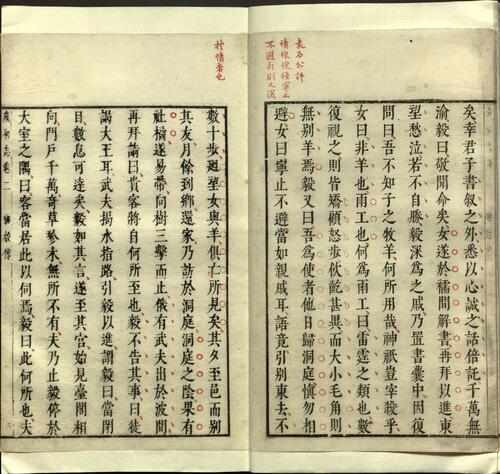 袁石公評
情根便種寧止
不避則又深
矣幸君子書叙之外悉以心誠之話倍託千萬無
渝毅曰敬聞命矣女遂於襦間解書再拜以進東
望愁泣若不自勝毅深爲之戚乃置書囊中因復
問曰吾不知子之牧羊何所用哉神祇豈宰殺乎
女曰非羊也雨工也何爲雨工曰雷霆之類也數
復視之則皆矯顧怒步飲齕甚異而大小毛角則
無别羊焉毅又曰吾爲使者他日歸洞庭愼勿相
避女曰寧止不避當如親戚耳語竟引别東去不
於情者也
數十步廻望女與羊俱亡所見矣其夕至邑而别
其友月餘到鄉還家乃訪於洞庭洞庭之陰果有
社橘遂易帶向樹三擊而止俄有武夫出於波間
再拜請曰貴客將自何所至也毅不告其事曰徒
謁大王耳武夫揭水指路引毅以進謂毅曰當閉
目數息可達矣毅如其言遂至其宮始見臺閣相
向門戶千萬奇草珍木無所不有夫乃止毅停於
大室之隅曰客當居此以伺焉毅曰此何所也夫
虞初志卷二 柳毅傳 三